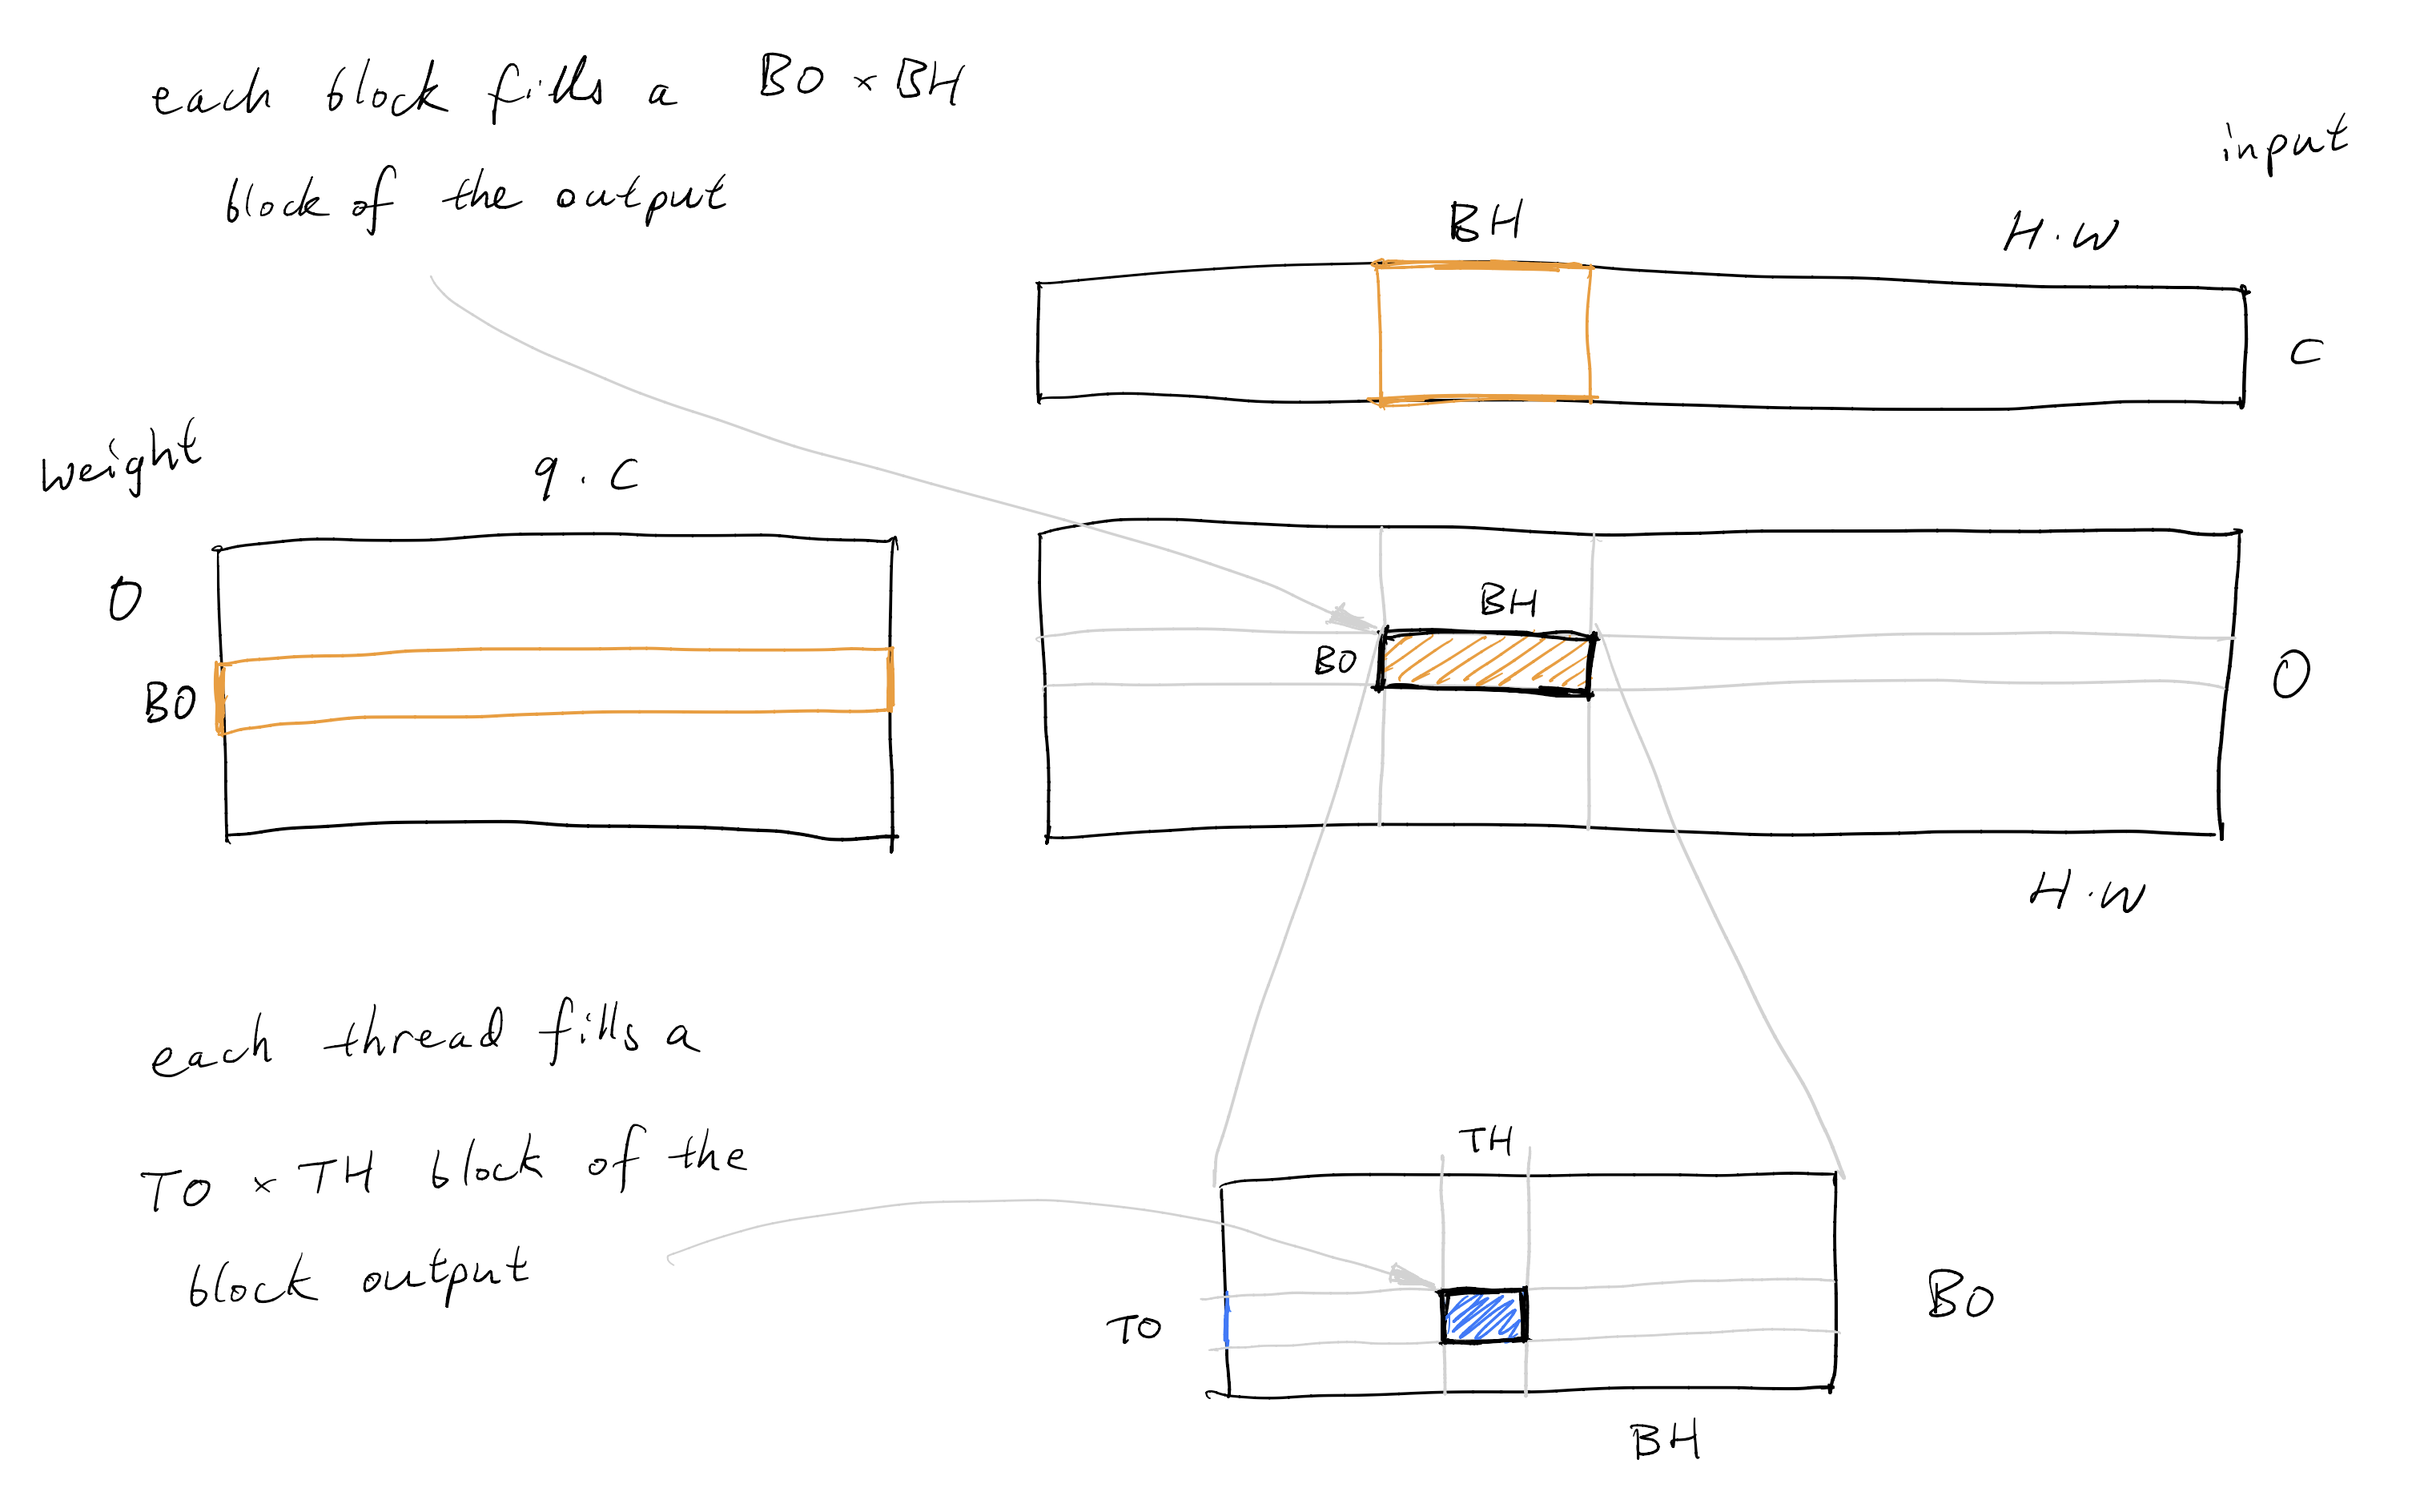 each block fills a BO × BH
block of the output
input
BH
H·W
C
weight
9·C
O
BO
BH
BO
O
H·W
each thread fills a
TO × TH block of the
block output
TH
TO
BO
BH